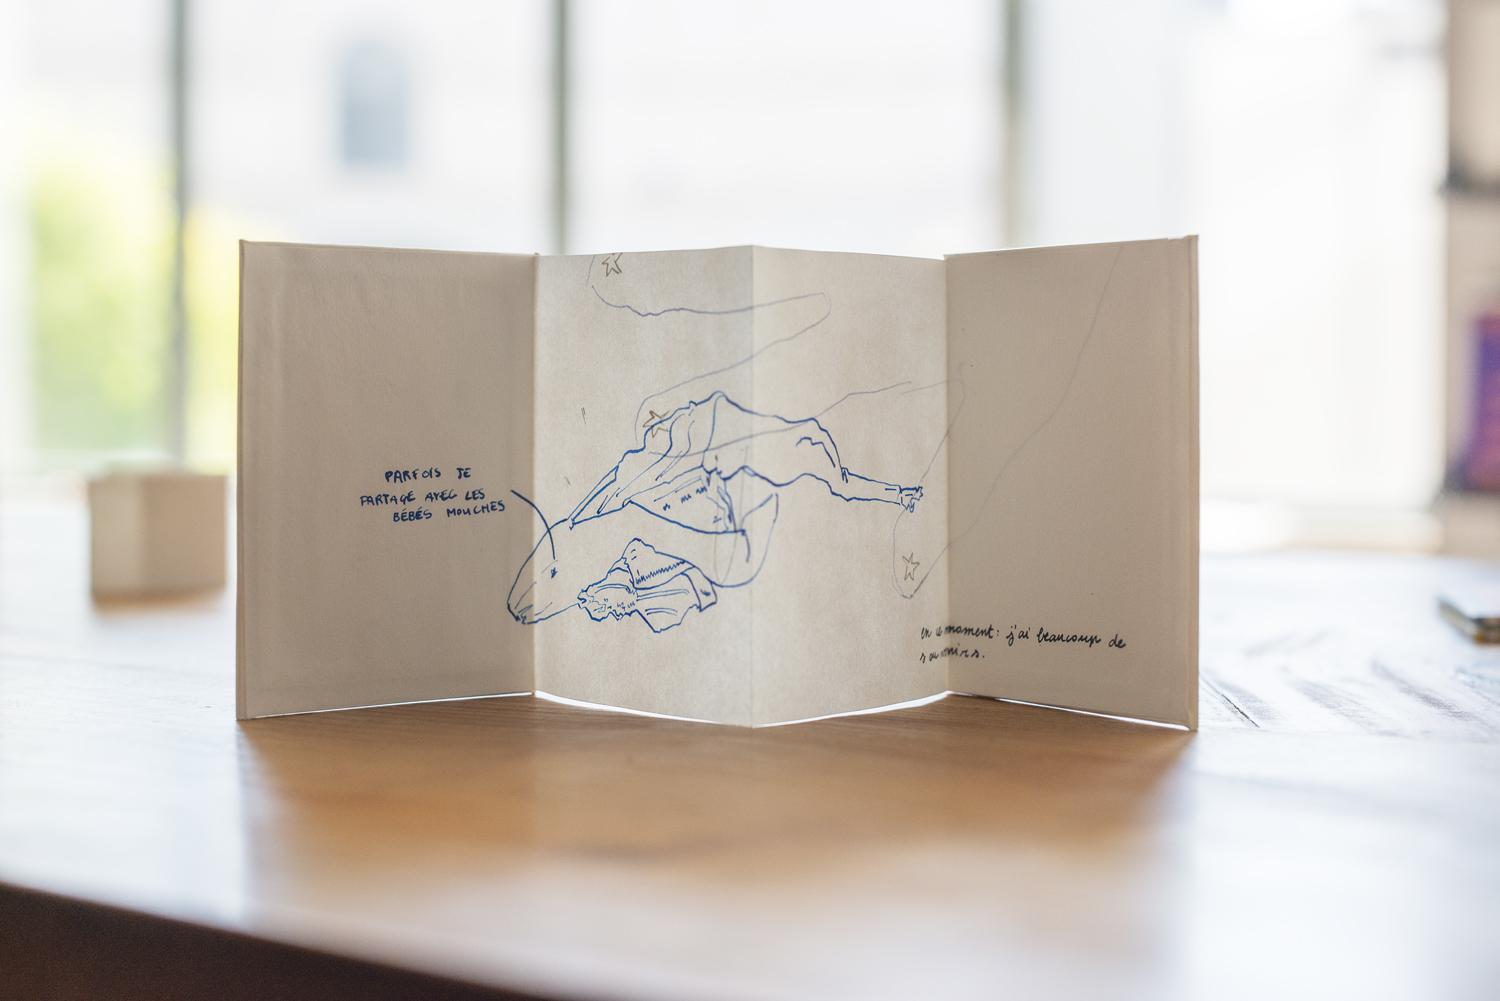 PARFOIS JE
PARTAGE AVEC LES
BÉBÉS MOUCHES
en ce moment: j'ai beaucoup de
souvenirs.